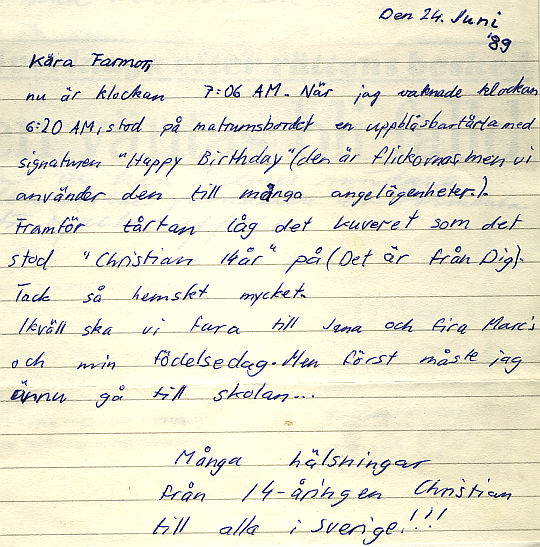 Den 24. Juni
'89
Kära Farmor,
nu är klockan 7:06 AM. När jag vaknade klockan
6:20 AM, stod på matrumsbordet en uppblåsbartårta med
signaturen "Happy Birthday" (den är flickornas, men vi
använder den till många angelägenheter.).
Framför tårtan låg det kuveret som det
stod "Christian 14 år" på (Det är från Dig).
Tack så hemsket mycket.
Ikväll ska vi fara till Jana och fira Marc's
och min födelsedag. Men först måste jag
ännu gå till skolan...
Många hälsningar
från 14-åringen Christian
till alla i Sverige!!!